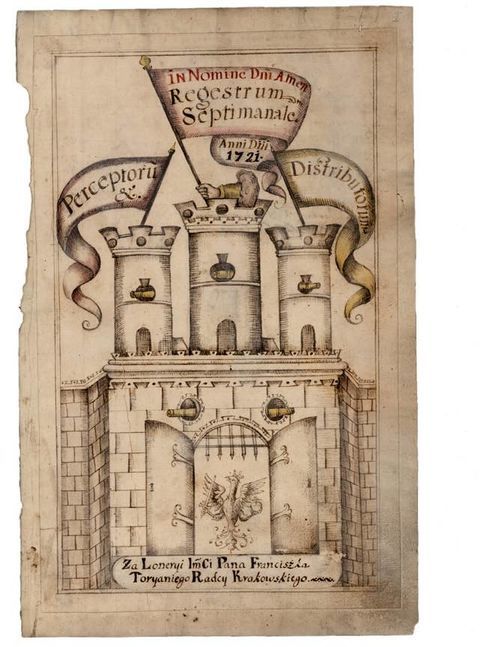 IN Nomine Dni Amen
Regestrum
Septimanale
Anni Dni
1721.
Perceptorũ
&.
Distributorum
Za Loneryi JmCi Pana Franciszka
Toryaniego Radcy Krakowskiego